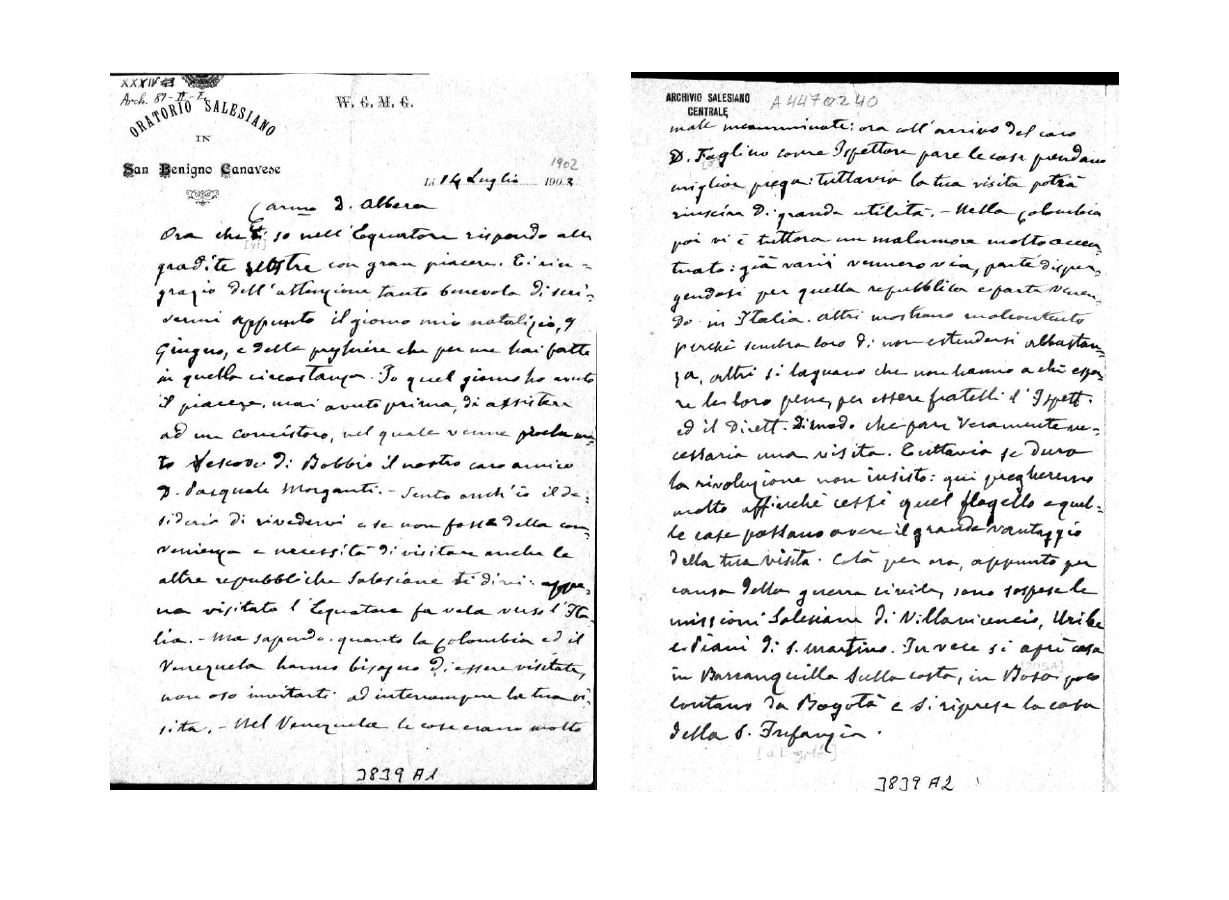 XXXIV
Arch. 81-II-I
ORATORIO SALESIANO
IN
San Benigno Canavese
W. G. M. G.
1902
Li 14 Luglio 190
Carmo D. Albera
Ora che ti so nell'Equatore rispondo alle
[vi]
gradite con gran piacere. Ti rin-
grazio dell'attenzione tanto benevola di scri-
vermi appunto il giorno mio natalizio, 9
Giugno, e delle preghiere che per me hai fatte
in quella circostanza. Io quel giorno ho avuto
il piacere, mai avuto prima, di assistere
ad un concistoro, nel quale venne proclama-
to Vescovo di Bobbio il nostro caro amico
D. Pasquale Morganti. - Sento anch'io il de-
siderio di rivedervi e se non fosse della con
venienza e necessità di visitare anche le
altre repubbliche Salesiane ti direi: appe-
na visitato l'Equatore fa vela verso l'Ita-
lia. - Ma sapendo quanto la Colombia ed il
Venezuela hanno bisogno di essere visitate,
non oso invitarti ad interrompere la tua vi-
sita. - Nel Venezuela le cose erano molto
3839 A1
ARCHIVIO SALESIANO
CENTRALE
A4470240
male incamminate: ora coll'arrivo del caro
D. Foglino come Ispettore pare le cose prendano
miglior piega: tuttavia la tua visita potrà
riuscire di grande utilità. - Nella Colombia
poi vi è tuttora un malumore molto accen-
tuato: già varii vennero via, parte disper-
gendosi per quella repubblica e parte venen-
do in Italia. Altri mostrano malcontento
perchè sembra loro di non estendersi abbastan-
za, altri si lagnano che non hanno a chi espor-
re le loro pene, per essere fratelli l'Ispett.
ed il Dirett. Dimodo che pare veramente ne-
cessaria una visita. Tuttavia se dura
la rivoluzione non insisto: qui pregheremo
molto affinchè cessi quel flagello e quel-
le case possano avere il grande vantaggio
della tua visita. Colà per ora, appunto per
causa della guerra civile, sono sospese le
missioni Salesiane di Villavicencio, Uribe
e Piani di S. Martino. Invece si aprì casa
[BOSA]
in Barranquilla sulla costa, in Bosa poco
lontano da Bogotà e si riprese la casa
della S. Infanzia.
3839 A2